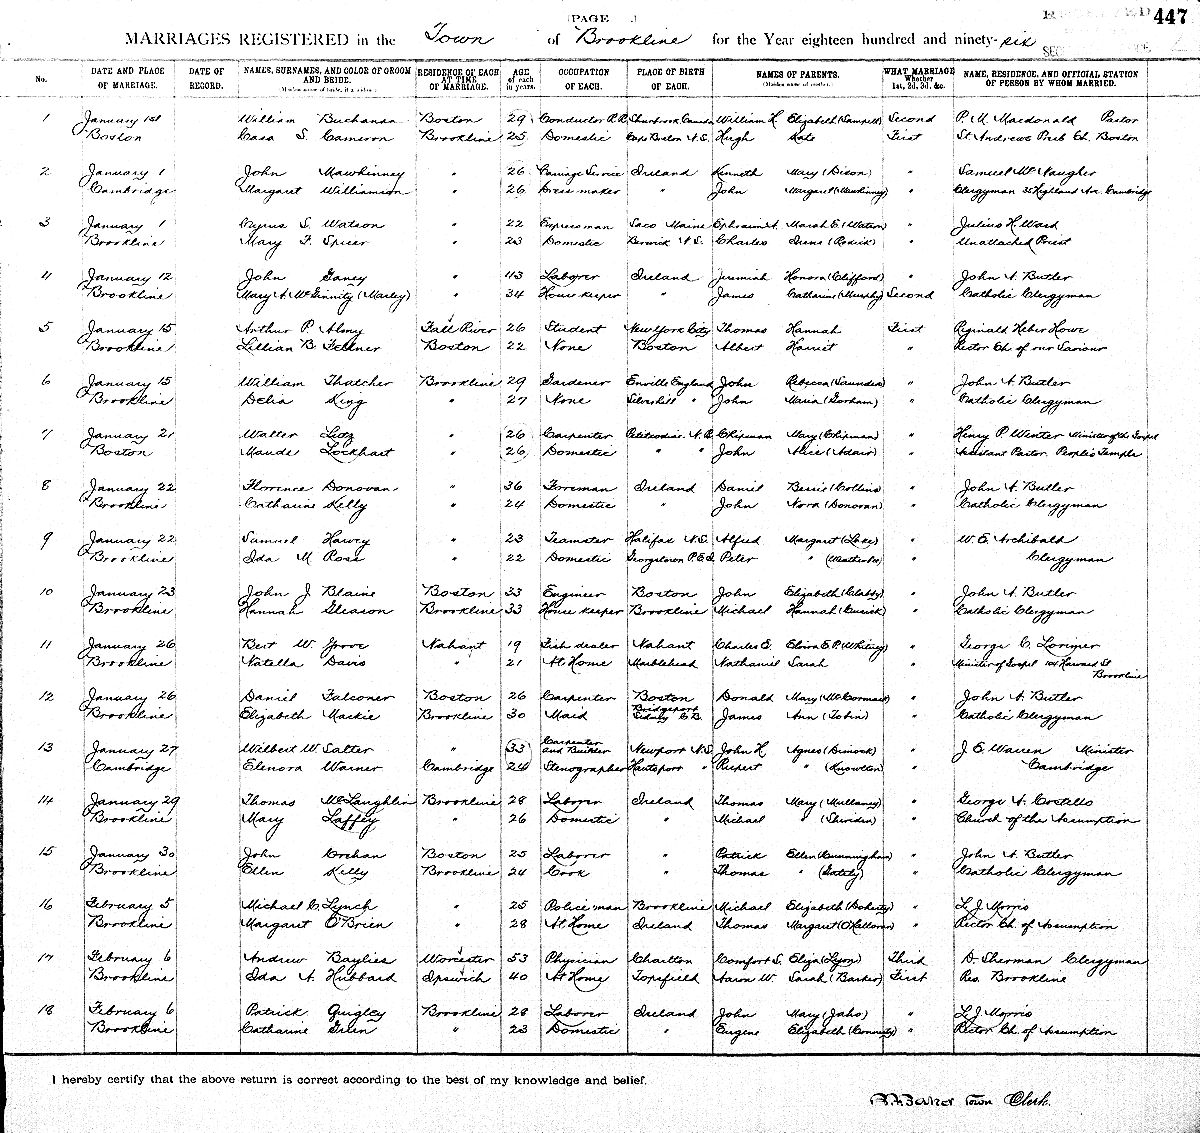 PAGE
447
MARRIAGES REGISTERED in the Town of Brookline for the Year eighteen hundred and ninety-six
No. DATE AND PLACE OF MARRIAGE. DATE OF RECORD. NAMES, SURNAMES, AND COLOR OF GROOM AND BRIDE. (Maiden name of bride, if a widow.) RESIDENCE OF EACH AT TIME OF MARRIAGE. AGE of each in years. OCCUPATION OF EACH. PLACE OF BIRTH OF EACH. NAMES OF PARENTS. (Maiden name of mother.) WHAT MARRIAGE Whether 1st, 2d, 3d, &c. NAME, RESIDENCE, AND OFFICIAL STATION OF PERSON BY WHOM MARRIED.
1 January 1st William Buchanan Boston 29 Conductor R.R. William H. Elizabeth (Campbell) Second P. M. Macdonald Pastor
Boston Cassa S. Cameron Brookline 25 Domestic Hugh Kate First St. Andrews Presb Ch. Boston
2 January 1 John Mawhinney " 26 Carriage Service Ireland Kenneth Mary (Dixon) " Samuel McNaugher
Cambridge Margaret Williamson " 26 Dress maker " John Margaret (Mawhinney) " Clergyman 35 Highland Ave. Cambridge
3 January 1 Cyrus S. Watson " 22 Expressman Saco Maine Ephraim A. Marah E. (Watson) " Julius H. Ward
Brookline Mary F. Spicer " 23 Domestic Berwick N.S. Charles Irene " Unattached Priest
4 January 12 John Ganey " 43 Laborer Ireland Jeremiah Honora (Clifford) " John A. Butler
Brookline Mary A. McGinnity (Marley) " 34 House keeper " James Catharine (Murphy) Second Catholic Clergyman
5 January 15 Arthur P. Almy Fall River 26 Student New York City Thomas Hannah First Reginald Heber Howe
Brookline Lillian B. Fellner Boston 22 None Boston Albert Harriet " Rector Ch. of our Saviour
6 January 15 William Thatcher Brookline 29 Gardener Enville England John Rebecca (Saunders) " John A. Butler
Brookline Delia King " 27 None Silverhill " John Maria (Gorham) " Catholic Clergyman
7 January 21 Walter Lutz " 26 Carpenter Petitcodiac N.B. Chipman Mary (Chipman) " Henry P. Winter Minister of the Gospel
Boston Maude Lockhart " 26 Domestic " " John Alice (Adair) " Assistant Pastor People's Temple
8 January 22 Florence Donovan " 36 Foreman Ireland Daniel Bessie (Collins) " John A. Butler
Brookline Catharine Kelly " 24 Domestic " John Nora (Donovan) " Catholic Clergyman
9 January 22 Samuel Havey " 23 Teamster Halifax N.S. Alfred Margaret " W. E. Archibald
Brookline Ida M. Rose " 22 Domestic Georgetown P.E.I. Peter " " Clergyman
10 January 23 John J. Blaine Boston 33 Engineer Boston John Elizabeth (Clabby) " John A. Butler
Brookline Hannah Gleason Brookline 33 House keeper Brookline Michael Hannah (Cusick) " Catholic Clergyman
11 January 26 Bert W. Grove Nahant 19 Fish dealer Nahant Charles E. Elvira E. P. (Whitney) " George C. Lorimer
Brookline Natella Davis " 21 At Home Marblehead Nathaniel Sarah " Minister of Gospel 104 Harvard St
Brookline
12 January 26 Daniel Falconer Boston 26 Carpenter Boston Donald Mary (McCormack) " John A. Butler
Brookline Elizabeth Mackie Brookline 30 Maid Bridgeport Sidney C.B. James Ann (Tobin) " Catholic Clergyman
13 January 27 Wilbert W. Salter " 33 Carpenter and Builder Newport N.S. John H. Agnes (Dimock) " J. E. Warren Minister
Cambridge Elenora Warner Cambridge 24 Stenographer Hantsport " Rupert " (Knowlton) " Cambridge
14 January 29 Thomas McLaughlin Brookline 28 Laborer Ireland Thomas Mary (Mullaney) " George A. Costello
Brookline Mary Laffey " 26 Domestic " Michael " (Sheridan) " Church of the Assumption
15 January 30 John Boston 25 Laborer " Patrick Ellen (Cunningham) " John A. Butler
Brookline Ellen Kelly Brookline 24 Cook " Thomas " " Catholic Clergyman
16 February 5 Michael C. Lynch " 25 Police man Brookline Michael Elizabeth (Doherty) " L. J. Morris
Brookline Margaret O'Brien " 28 At Home Ireland Thomas Margaret (O'Halloran) " Rector Ch. of Assumption
17 February 6 Andrew Baylies Worcester 53 Physician Charlton Comfort S. Eliza (Lyon) Third D. Sherman Clergyman
Brookline Ida A. Hubbard Ipswich 40 At Home Topsfield Aaron W. Sarah (Barker) First Res. Brookline
18 February 6 Patrick Quigley Brookline 28 Laborer Ireland John Mary " L. J. Morris
Brookline Catharine " 23 Domestic " Eugene Elizabeth " Rector Ch. of Assumption
I hereby certify that the above return is correct according to the best of my knowledge and belief.
Baker Town Clerk.